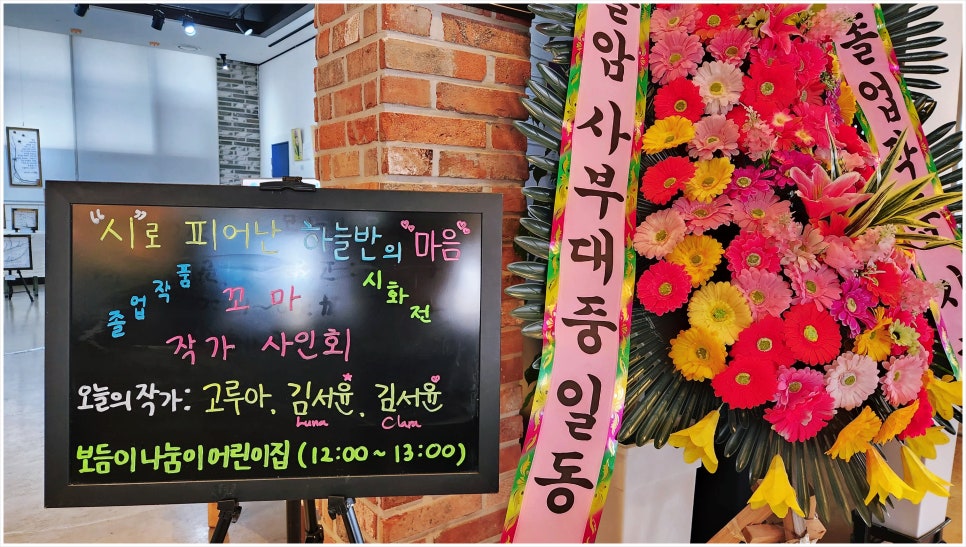 "시"로 피어난 하늘반의 "마음"
졸업작품 꼬마 시화전
작가 사인회
오늘의 작가: 고루아, 김서윤, 김서윤
Luna Clara
보듬이 나눔이 어린이집 (12:00 ~ 13:00)
암 사부대중 일동
졸업